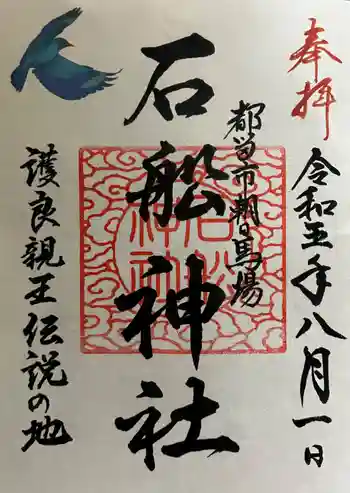 奉拝
令和五年八月一日
都留市朝日馬場
石船神社
護良親王伝説の地
石船神社